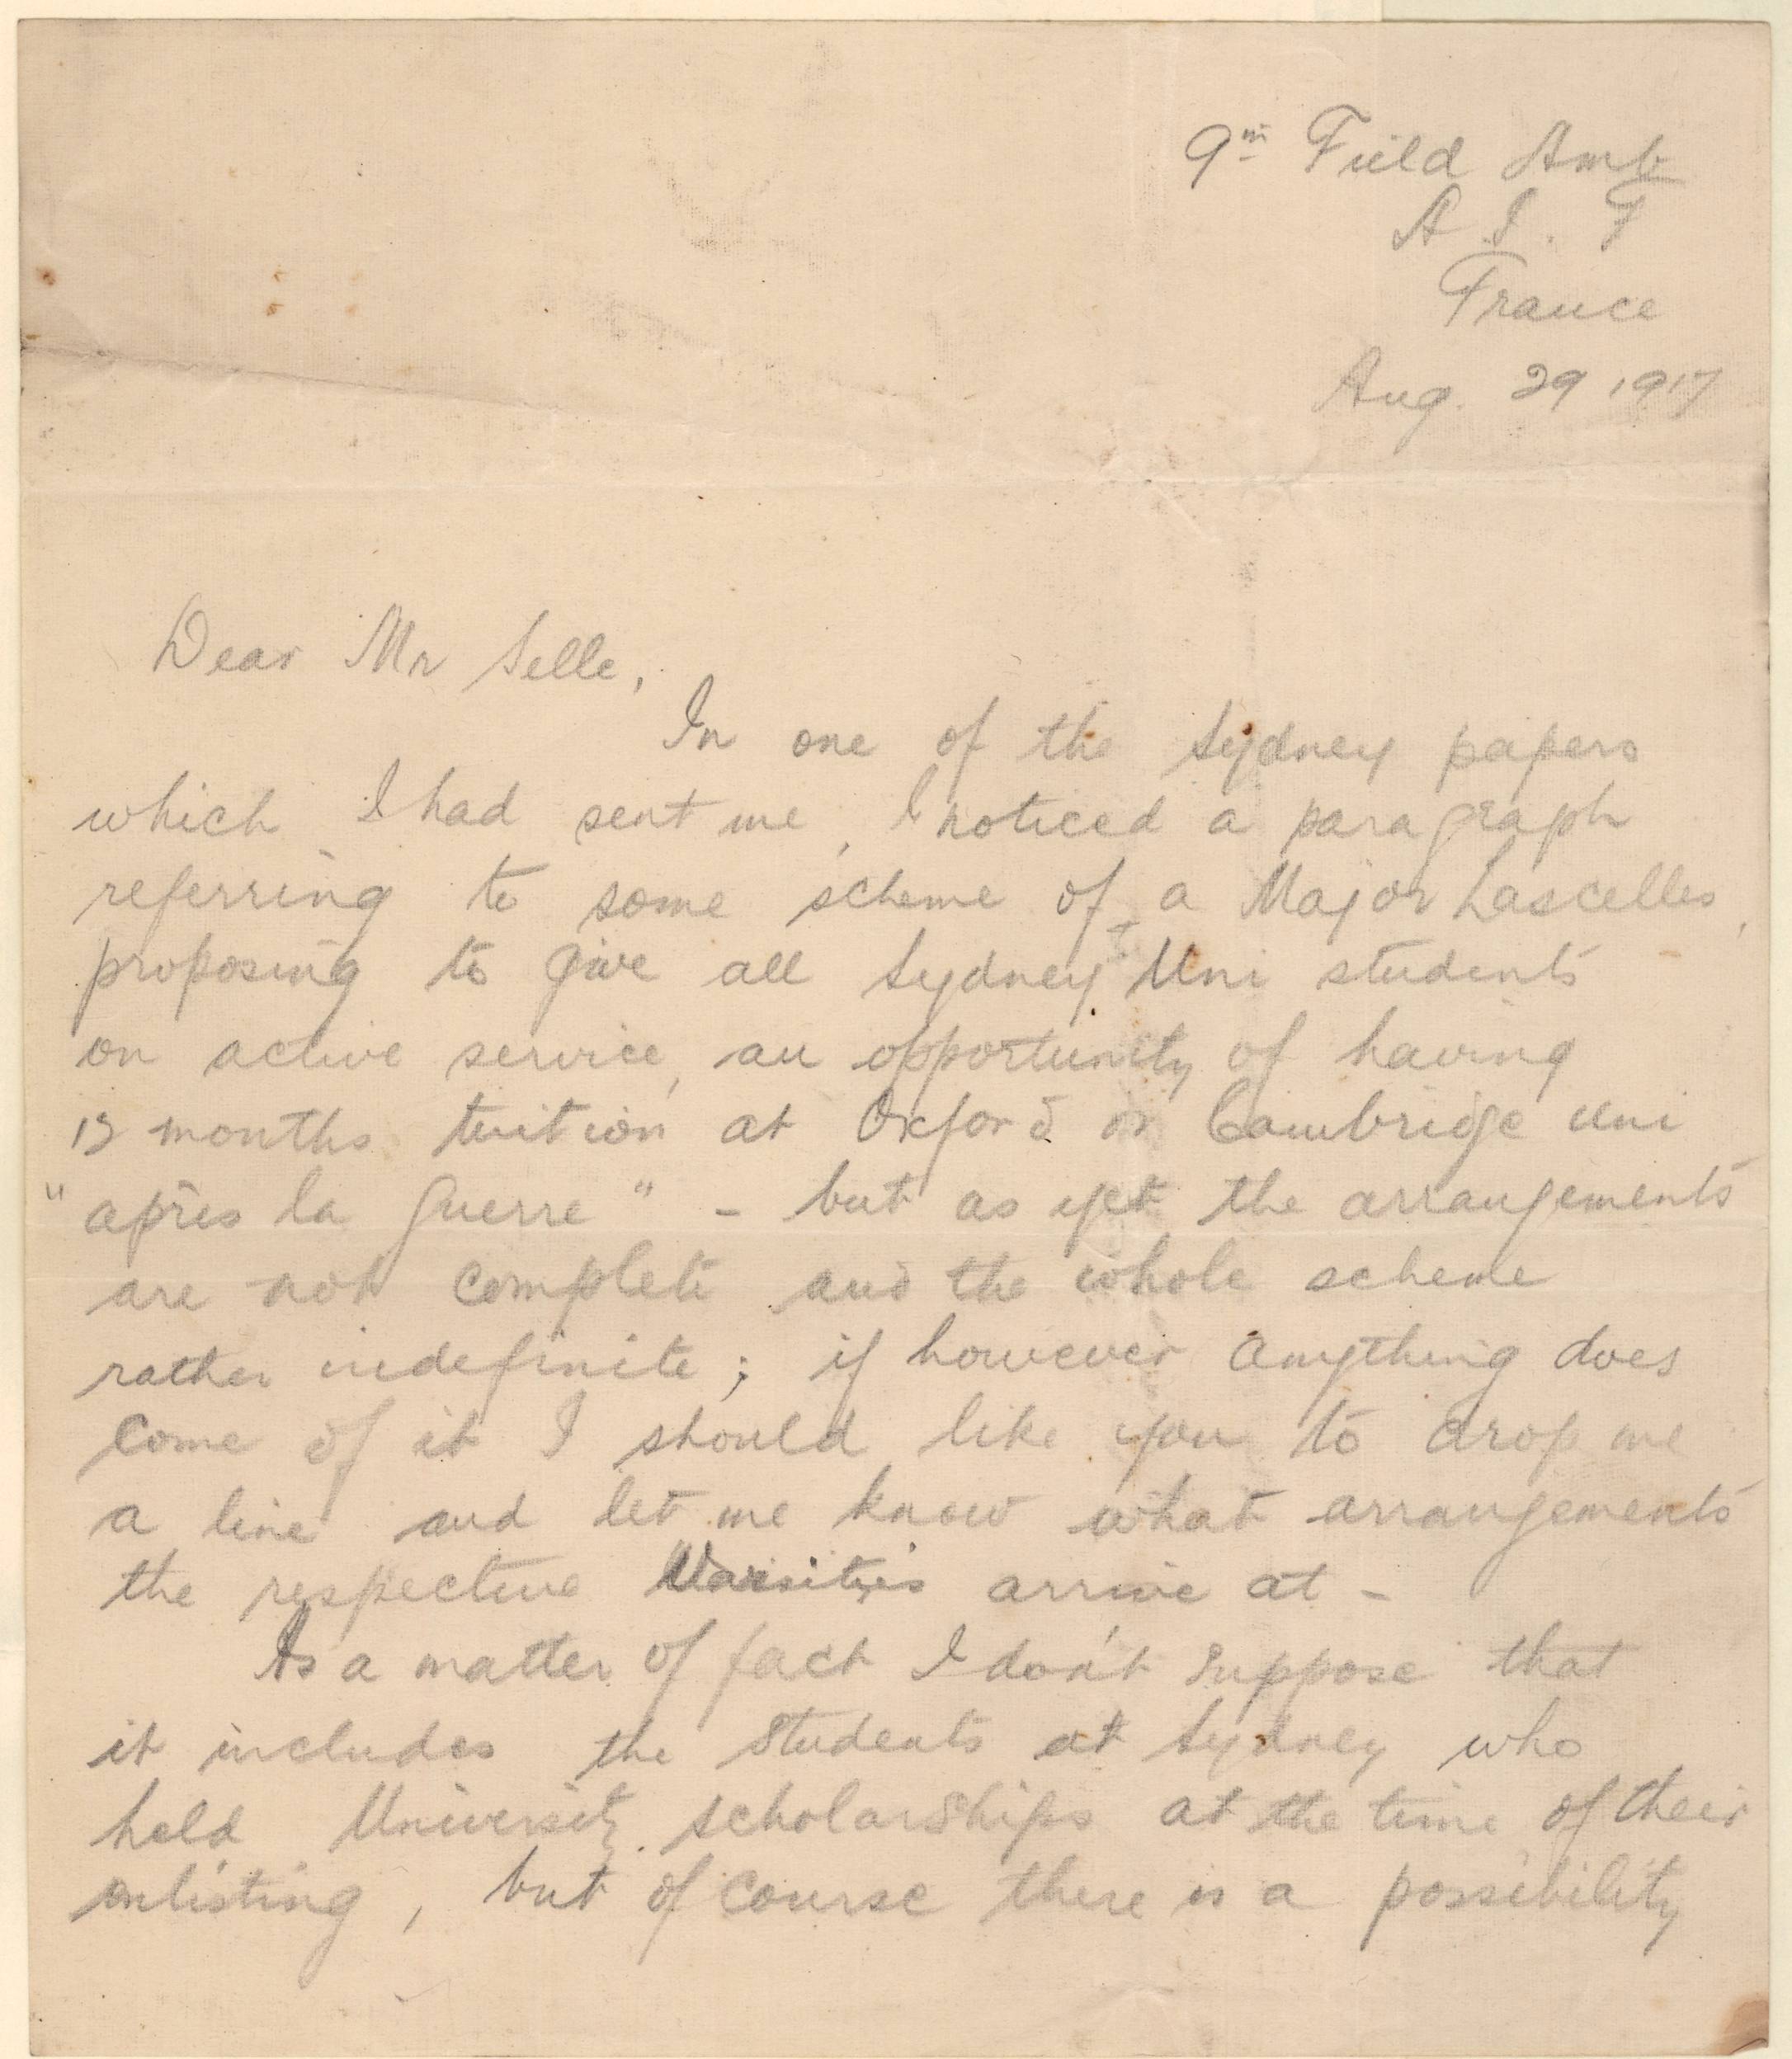 9th Field Amb
A. I. F
France
Aug. 29 1917
Dear Mr Selle,
In one of the Sydney papers
which I had sent me, I noticed a paragraph
referring to some scheme of a Major Lascelles,
proposing to give all Sydney Uni students
on active service, an opportunity of having
12 months tuition at Oxford or Cambridge Uni
"après la guerre" - but as yet the arrangements
are not complete and the whole scheme
rather indefinite; if however anything does
come of it I should like you to drop me
a line and let me know what arrangements
the respective Varsities arrive at -
As a matter of fact I don't suppose that
it includes the students at Sydney who
held University scholarships at the time of their
enlisting, but of course there is a possibility